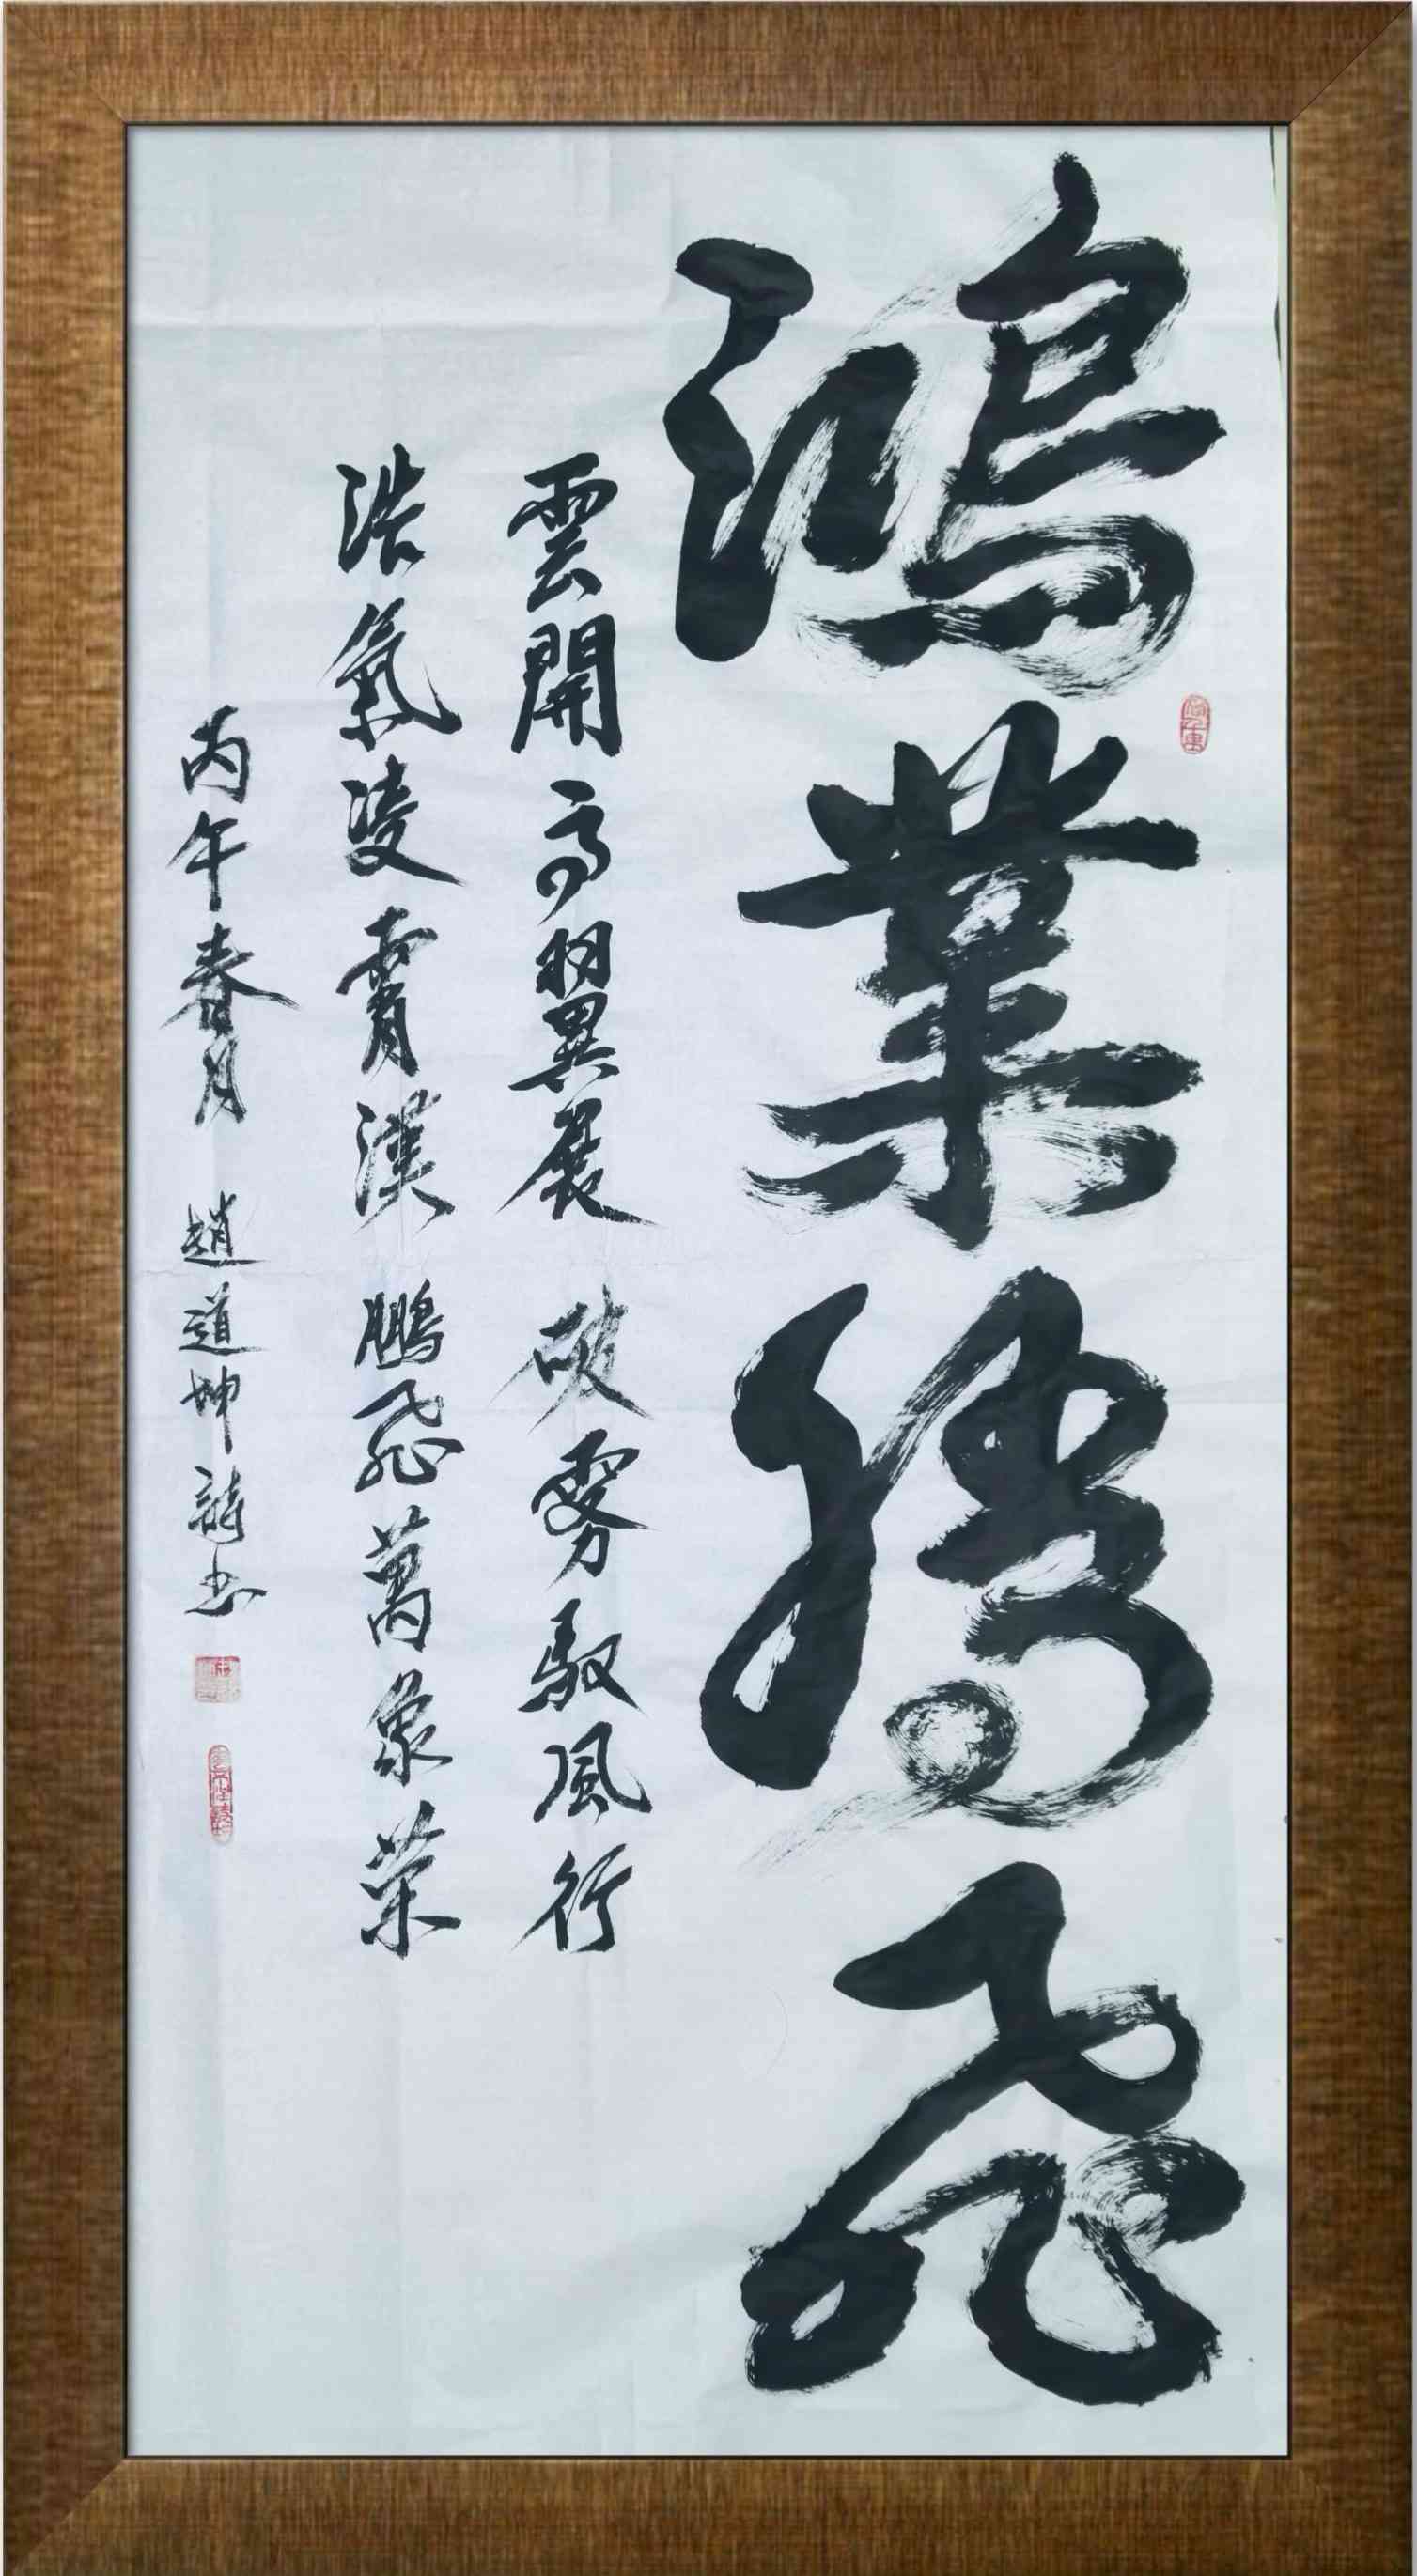 鴻業騰飛
雲開高翼展 破霧馭風行
浩氣凌霄漢 鵬飛萬象榮
丙午春月 趙道坤詩书